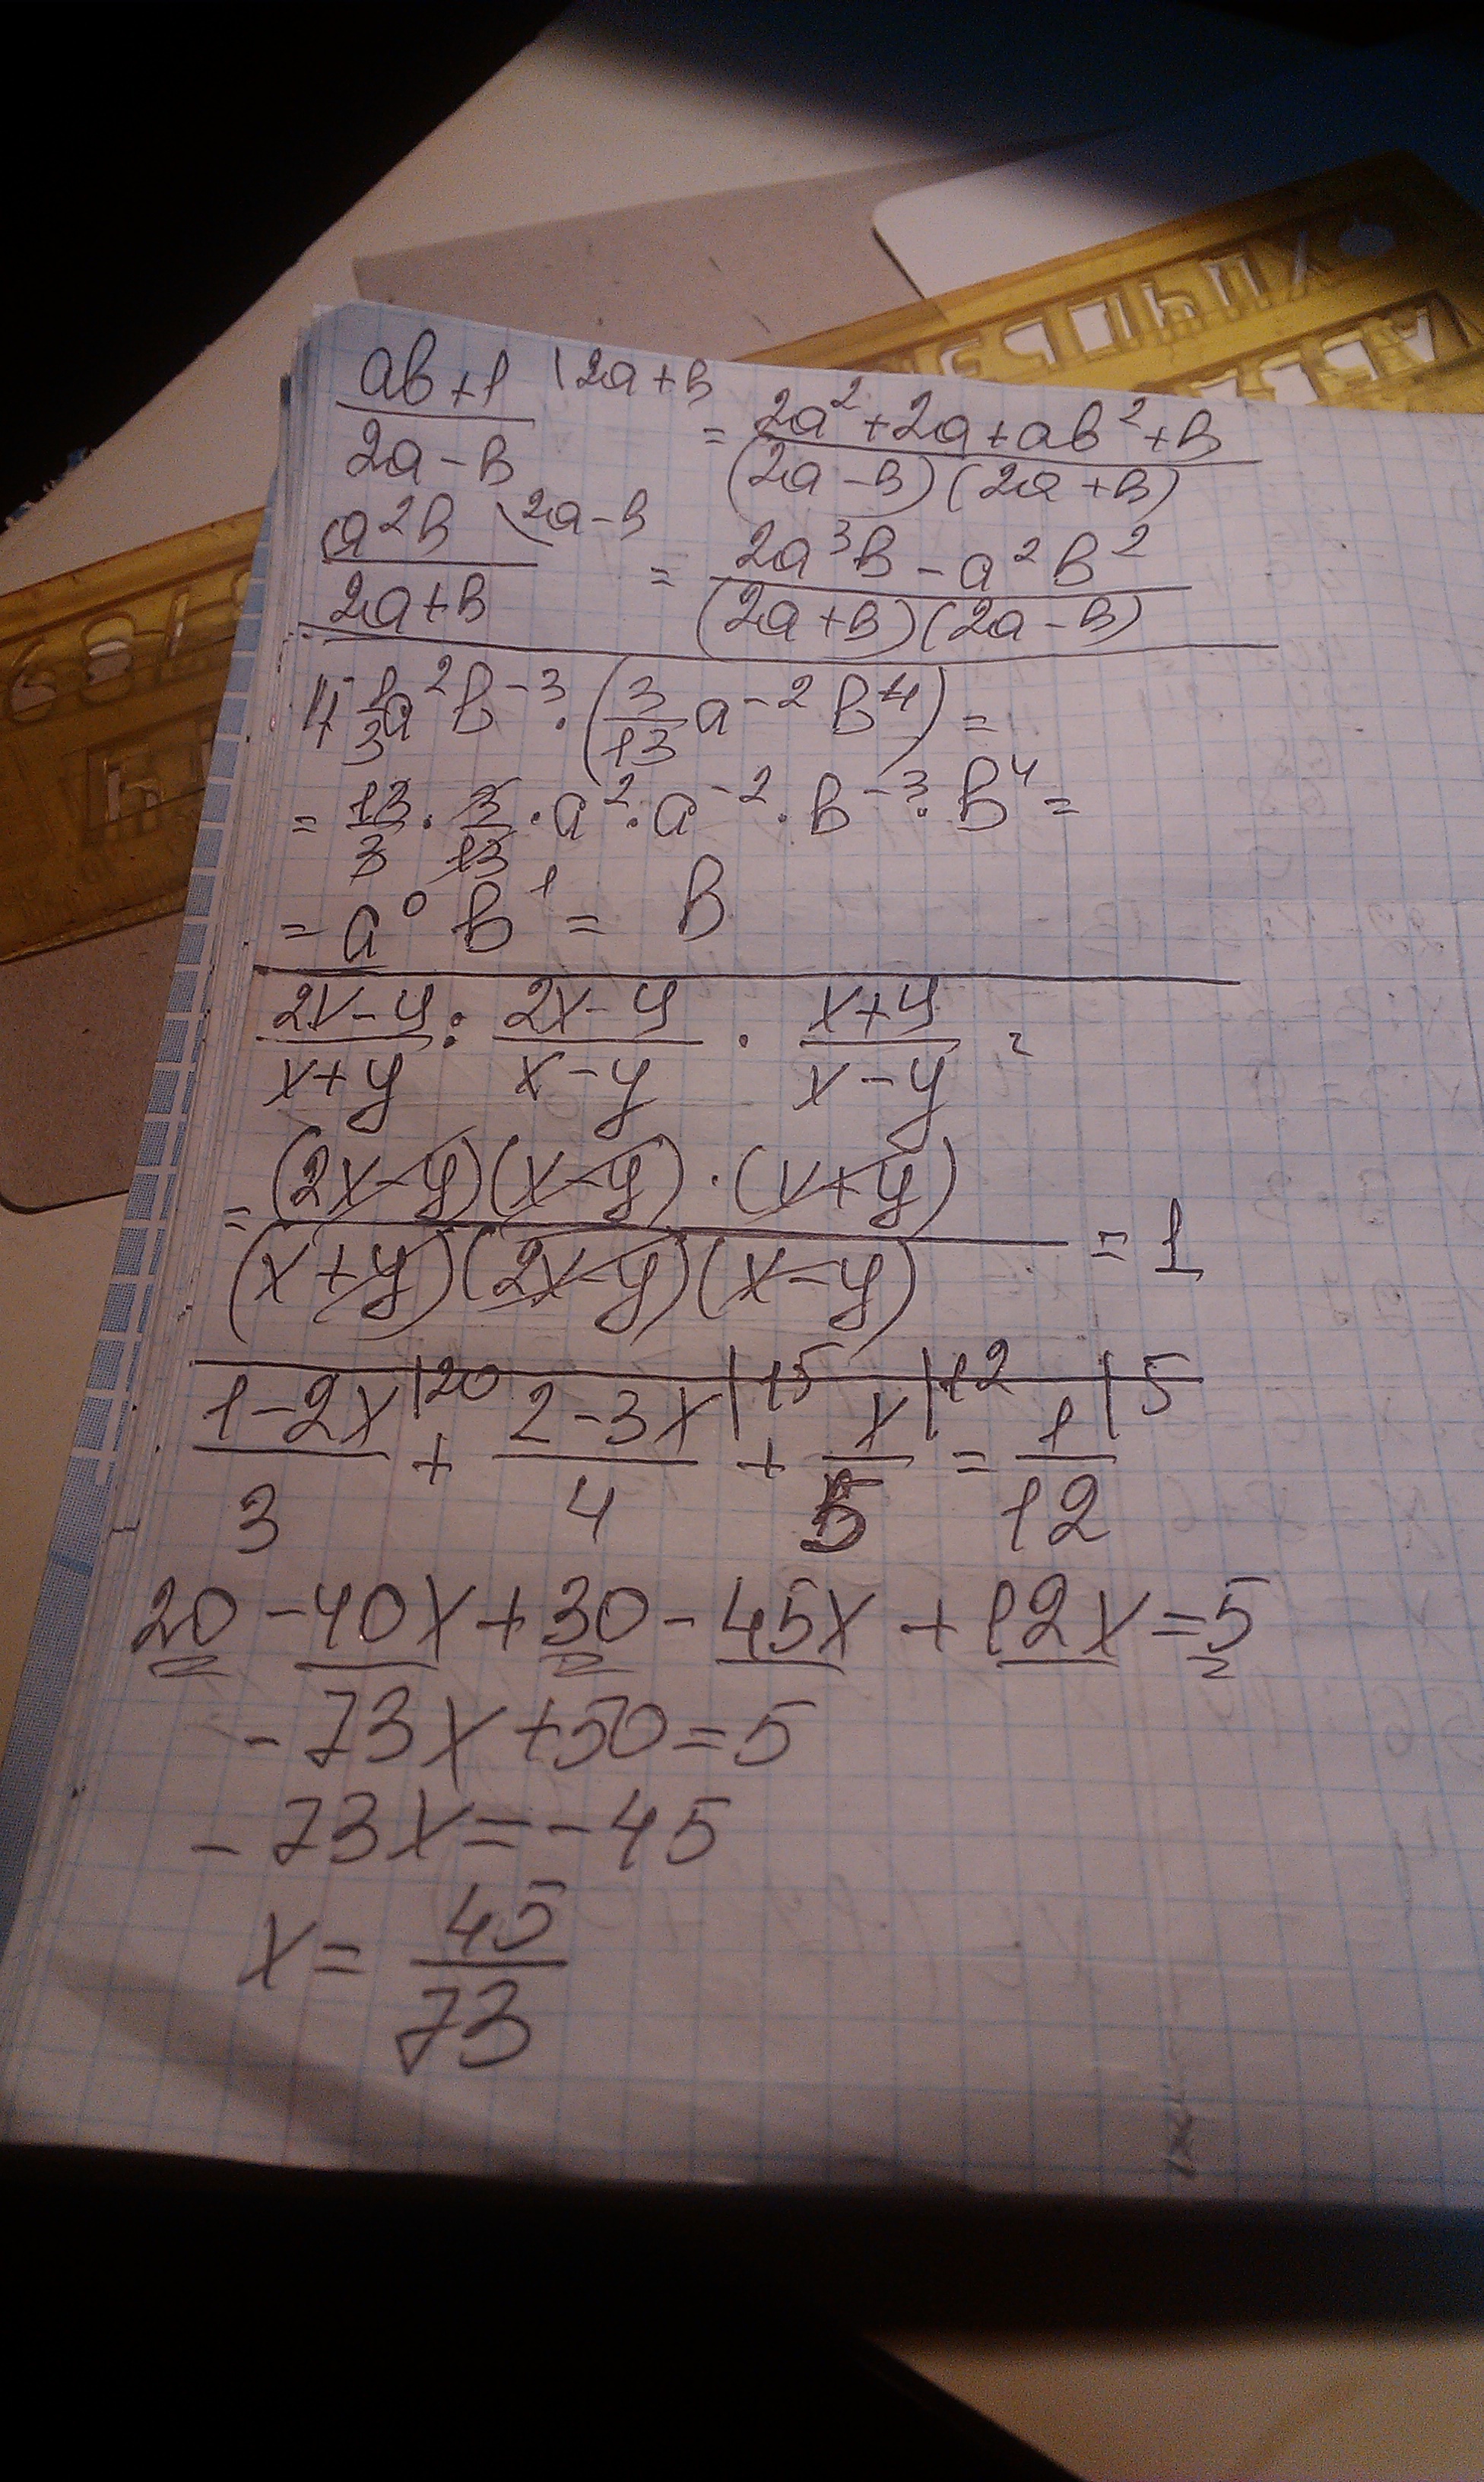 ав+1 \2a+в
2a-в = 2a²+2a+aв²+в
(2a-в)(2a+в)
a²в \2a-в
2a+в = 2a³в-a²в²
(2a+в)(2a-в)
4 1/3 a²в⁻³·(3/13 a⁻²в⁴)=
= 13/3 · 3/13 · a²·a⁻²·в⁻³·в⁴=
= a⁰ в¹ = в
2x-y/x+y : 2x-y/x-y · x+y/x-y =
= (2x-y)(x-y)·(x+y)/(x+y)(2x-y)(x-y) = 1
1-2x|20/3 + 2-3x|15/4 + x|12/5 = 1|5/12
20-40x+30-45x+12x=5
-73x+50=5
-73x=-45
x=45/73